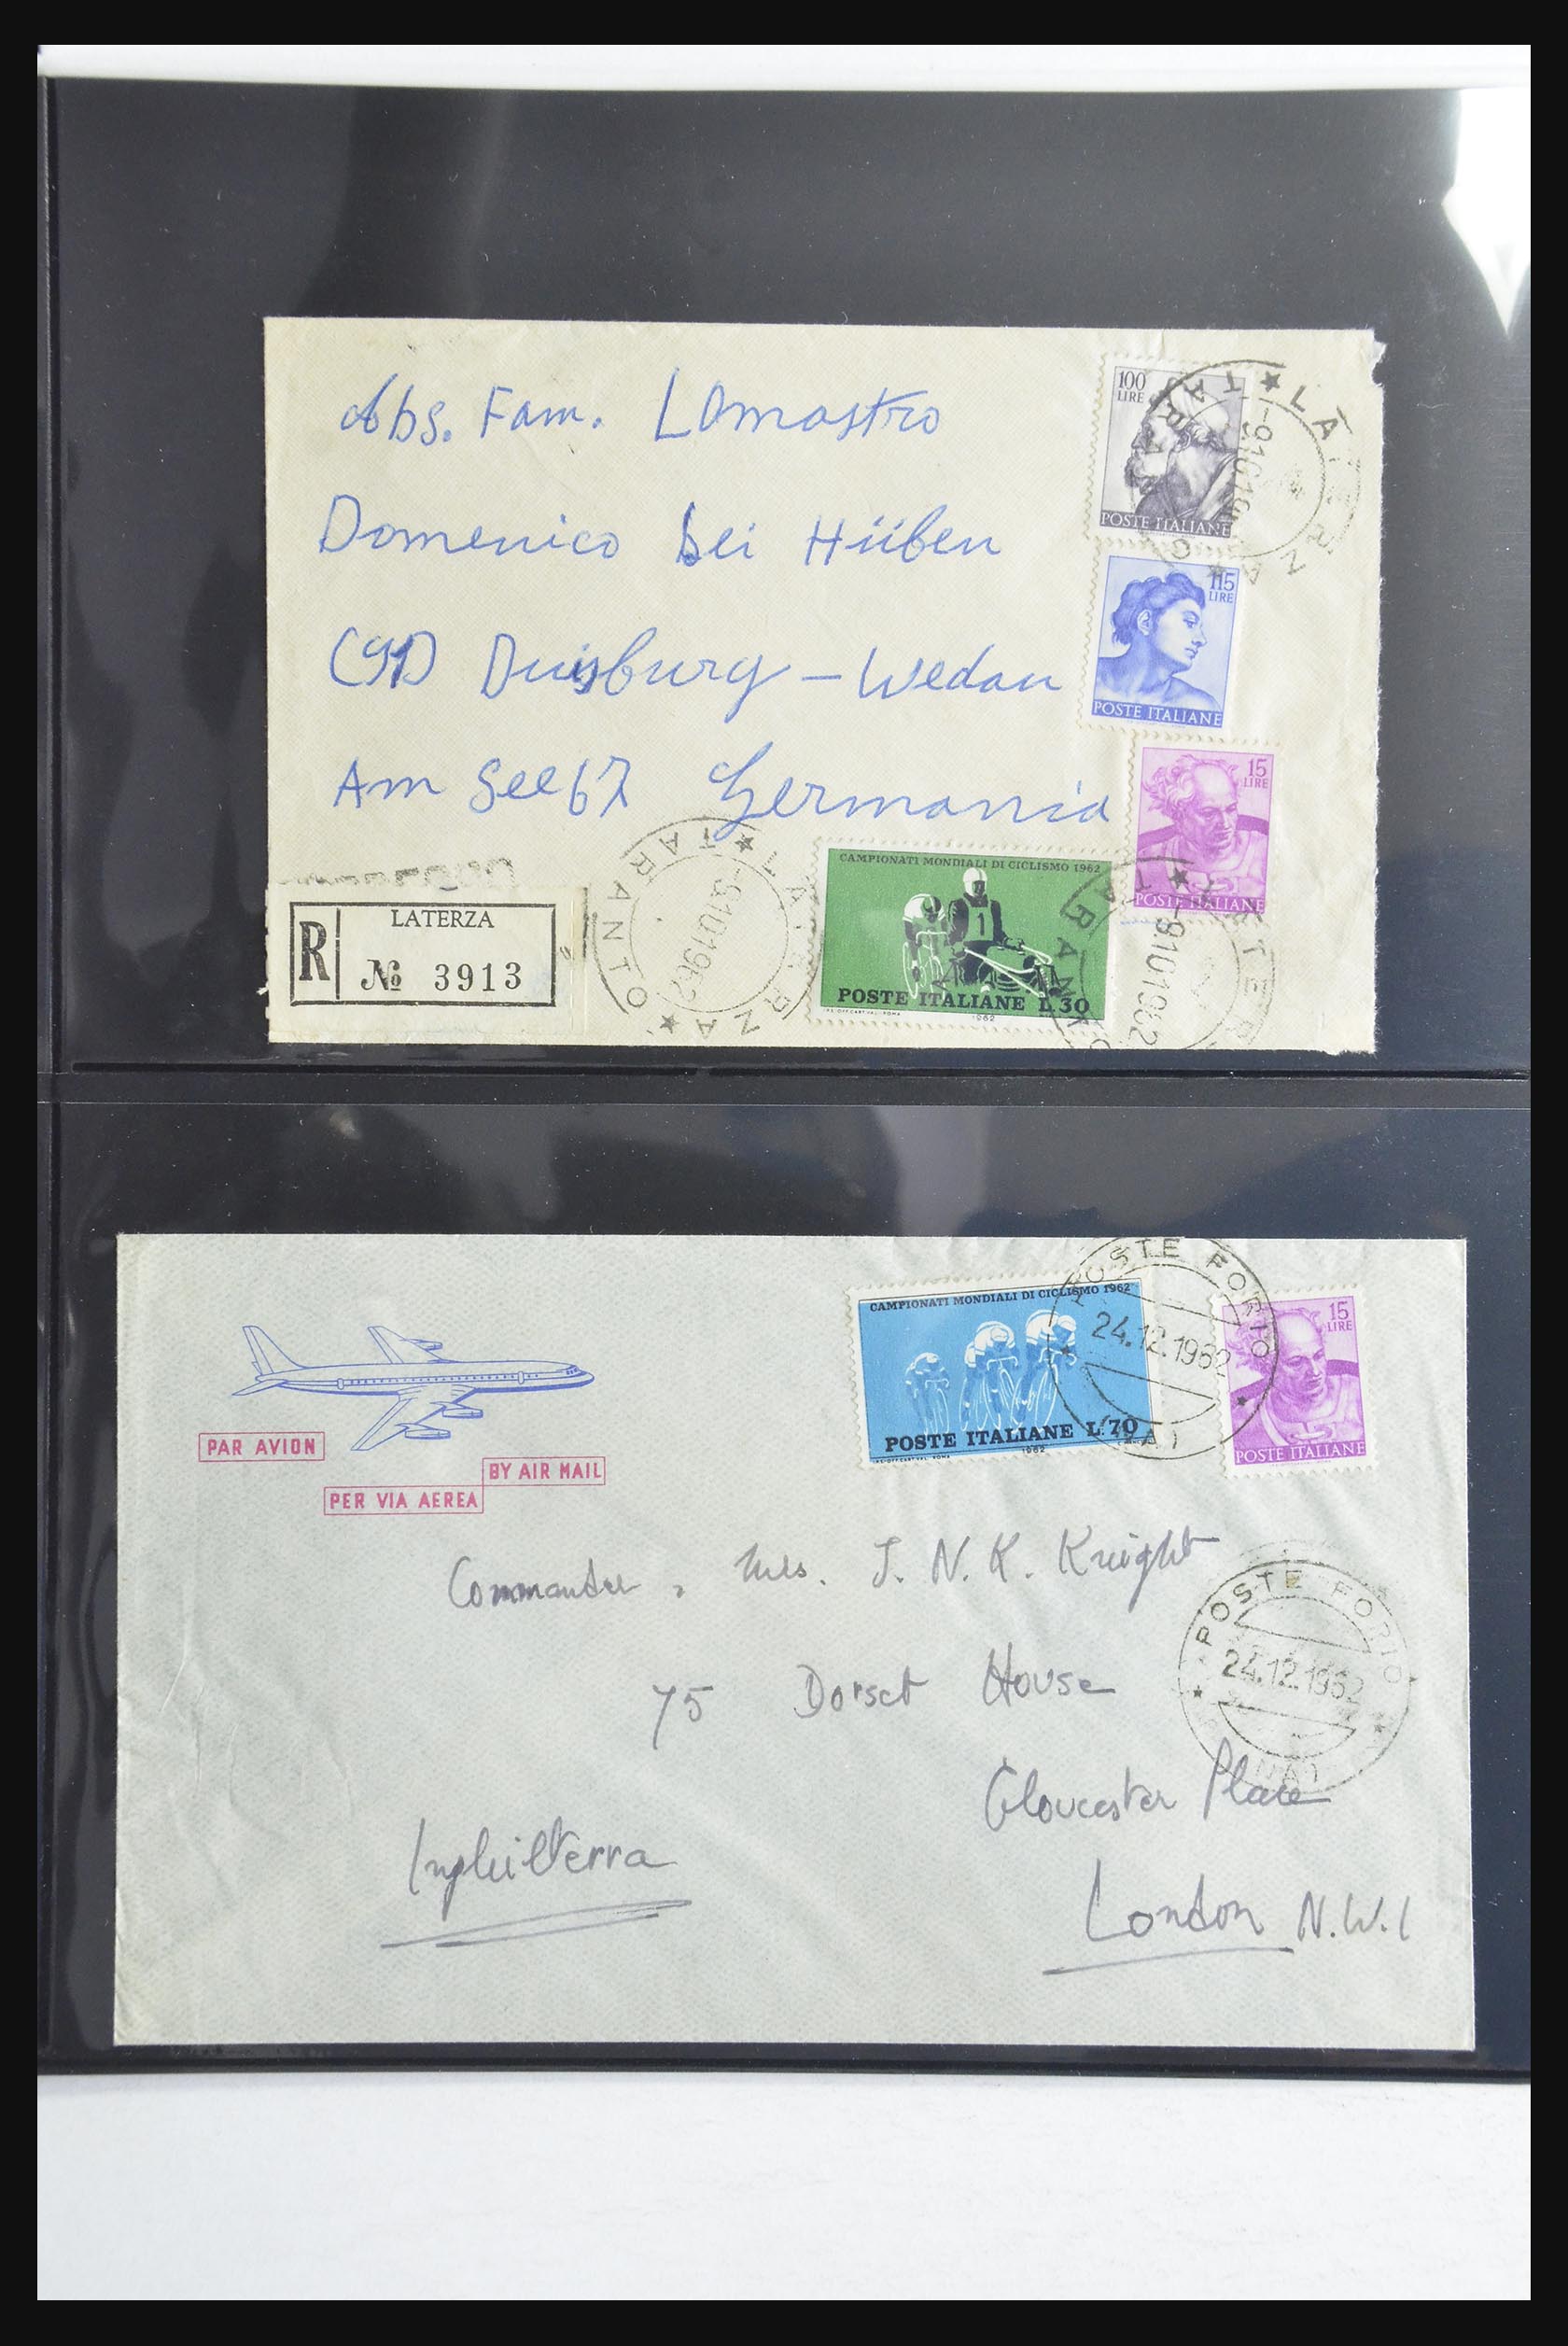 Abs. Fam. LOmastro
Domenico bei Hüben
Duisburg – Wedau
Am See 67 Germania
100
LIRE
POSTE ITALIANE
115
LIRE
POSTE ITALIANE
15
LIRE
POSTE ITALIANE
CAMPIONATI MONDIALI DI CICLISMO 1962
POSTE ITALIANE L.30
1962
LATERZA
R
№ 3913
★ LATERZA ★ TARANTO
-9.10.1962
★ LATERZA ★ TARANTO
-9.10.1962
★ LATERZA ★ TARANTO
-9.10.1962
CAMPIONATI MONDIALI DI CICLISMO 1962
POSTE ITALIANE L.70
1962
15
LIRE
POSTE ITALIANE
POSTE FORIO
24.12.1962
PAR AVION
BY AIR MAIL
PER VIA AEREA
Commander, Mrs. J. N. K. Knight
75 Dorset House
Gloucester Place
London N.W.1
Inghilterra
POSTE FORIO
24.12.1962